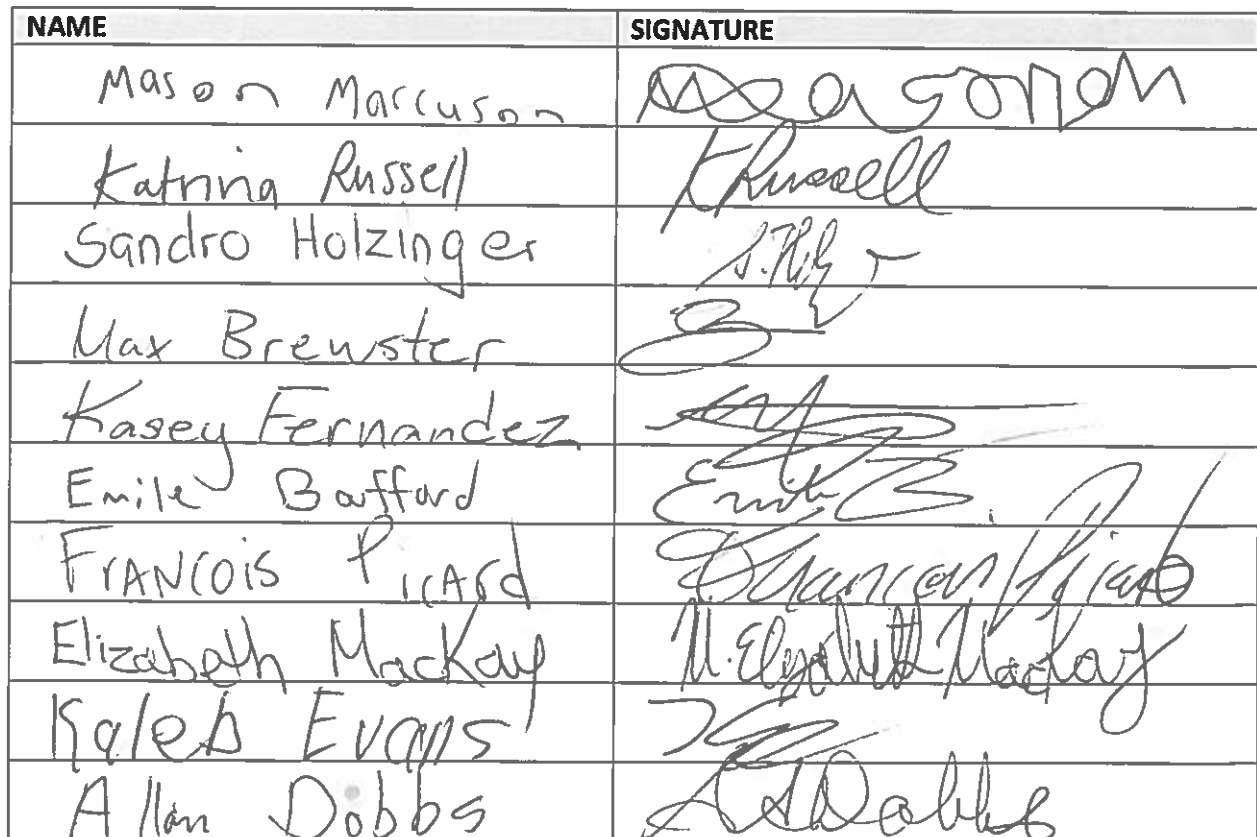 NAME SIGNATURE
Mason Marcuson
Katrina Russell KRussell
Sandro Holzinger
Max Brewster
Kasey Fernandez
Emile Bafford Emile B
FrANCOIS PICArd Francois Picard
Elizabeth MacKay M. Elizabeth MacKay
Kaleb Evans
Allan Dobbs A Dobbs